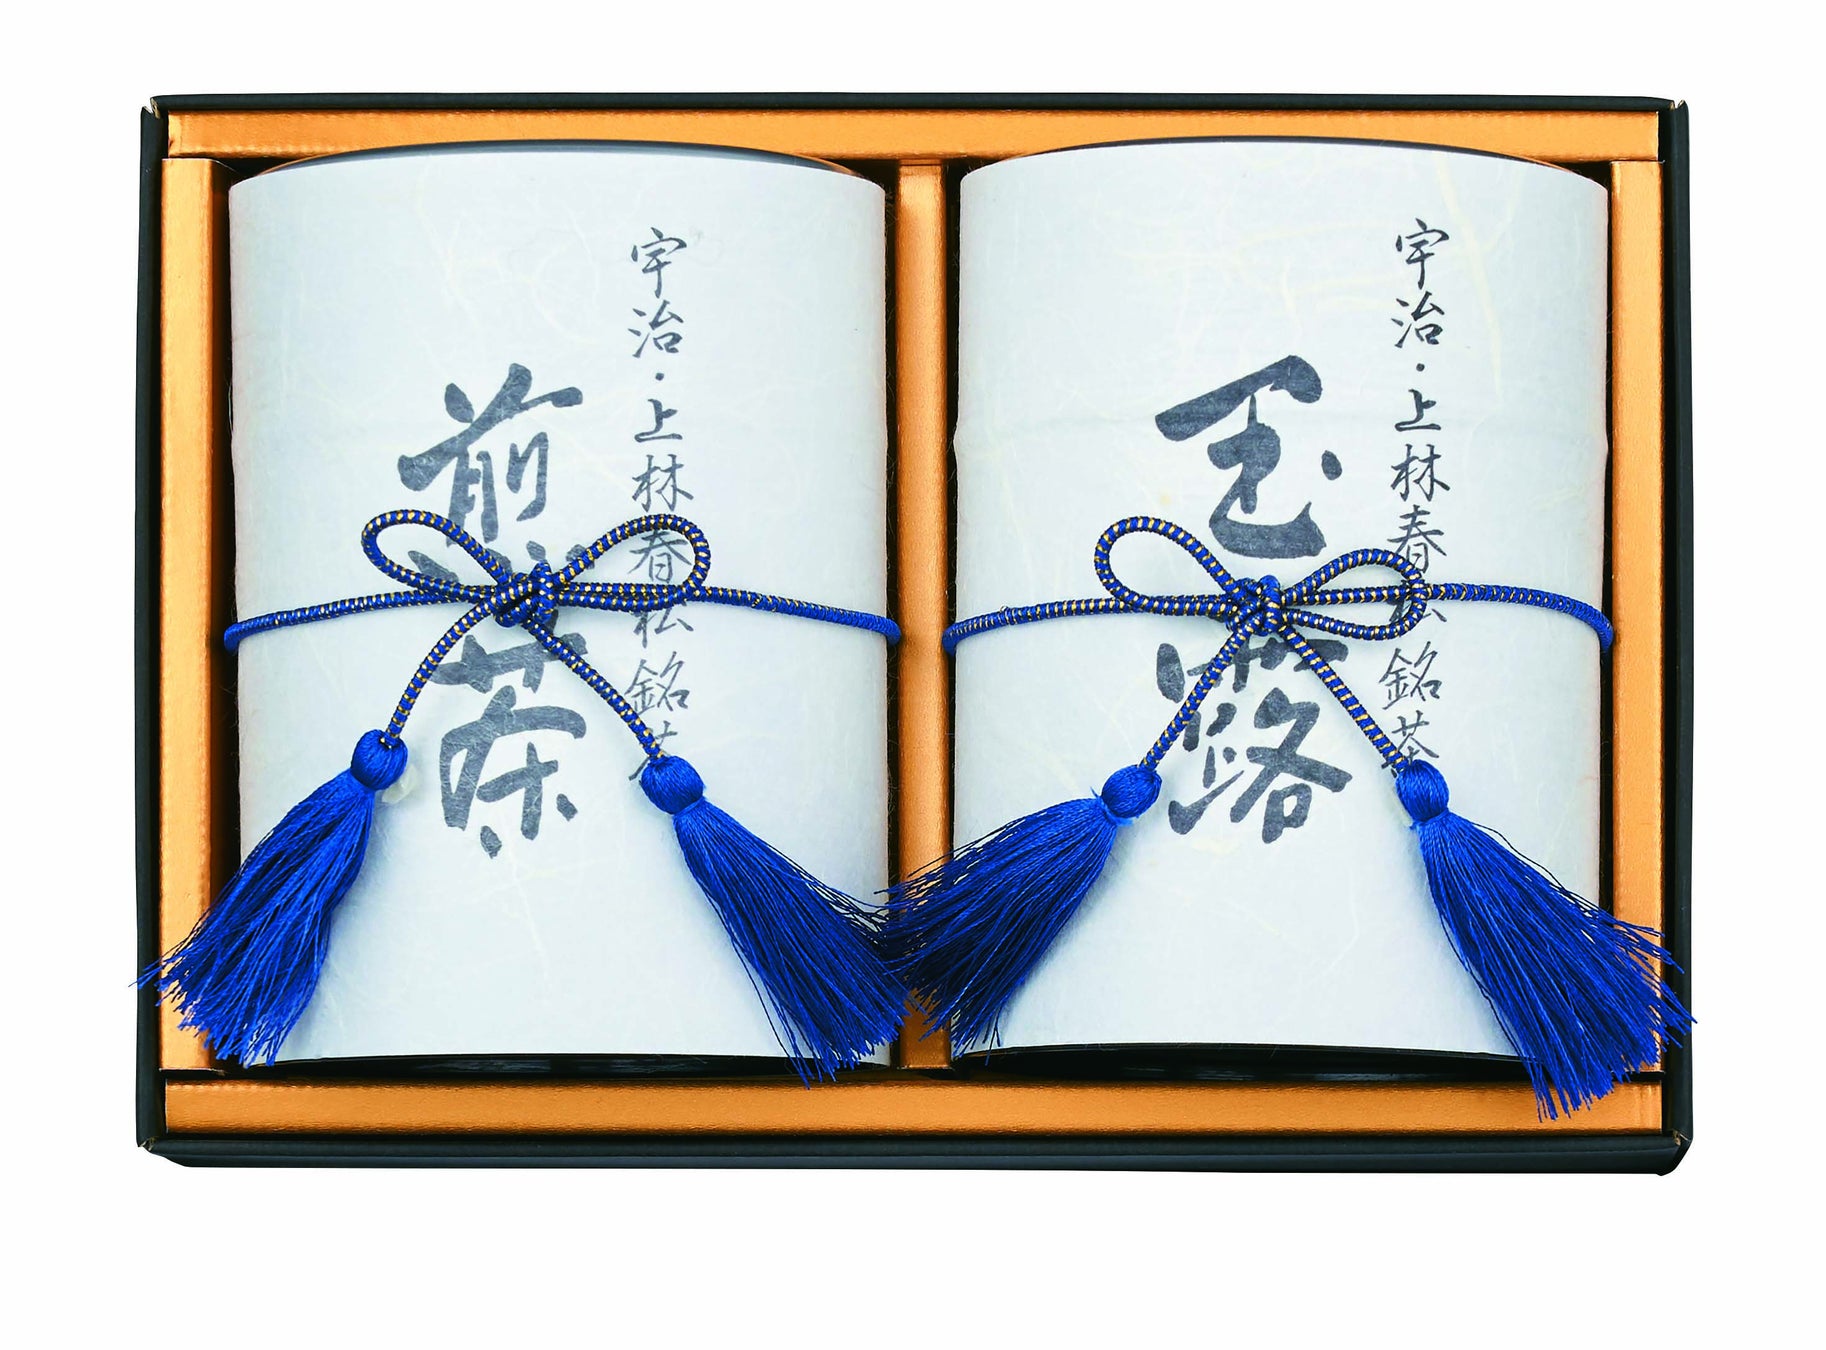 宇治・上林春松銘茶
煎茶
宇治・上林春松銘茶
玉露